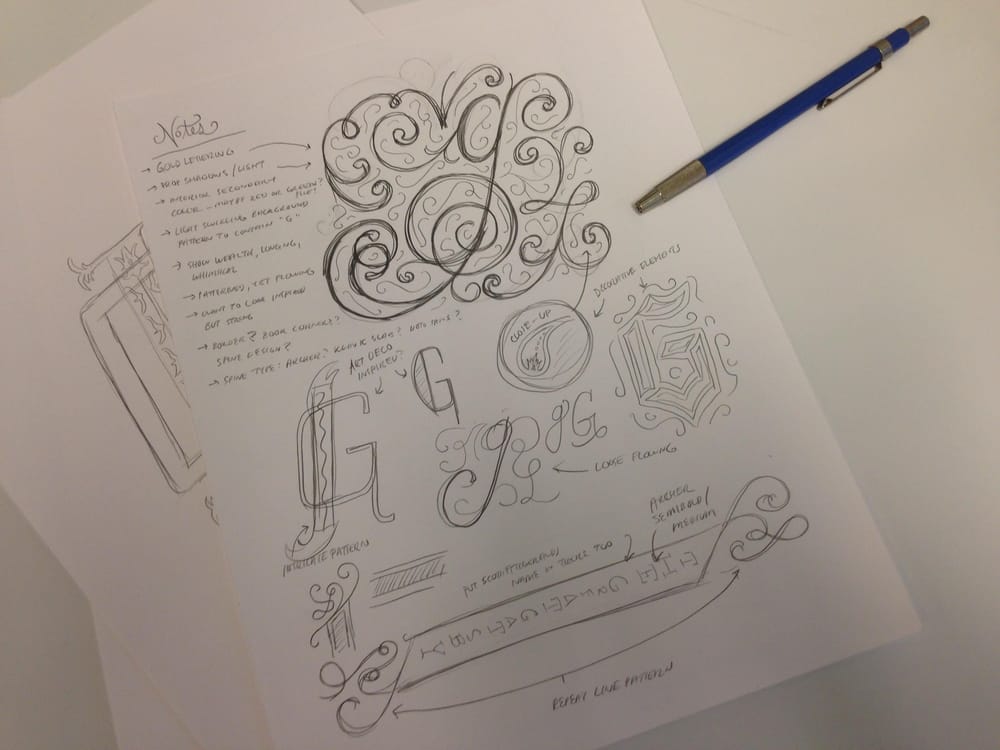 Notes
→ GOLD LETTERING
→ DROP SHADOWS/LIGHT
→ INTERIOR SECONDARY
COLOR - MAYBE RED OR GREEN?
→ LIGHT SWIRLING BACKGROUND
PATTERN TO CONTAIN "G"
→ SHOW WEALTH, LONGING,
WHIMSICAL
→ PATTERNED, YET FLOWING
→ WANT TO LOOK INSPIRED
BUT STRONG
→ BORDER? BOOK CORNERS?
SPINE DESIGN?
→ SPINE TYPE: ARCHER?
ART DECO
INSPIRED?
G
G
CLOSE-UP
DECORATIVE ELEMENTS
G
g
gG
LOOSE FLOWING
INTRICATE PATTERN
ARCHER
SEMIBOLD/
MEDIUM
PUT SCOTT FITZGERALD
NAME IN THERE TOO
THE GREAT GATSBY
REPEAT LINE PATTERN